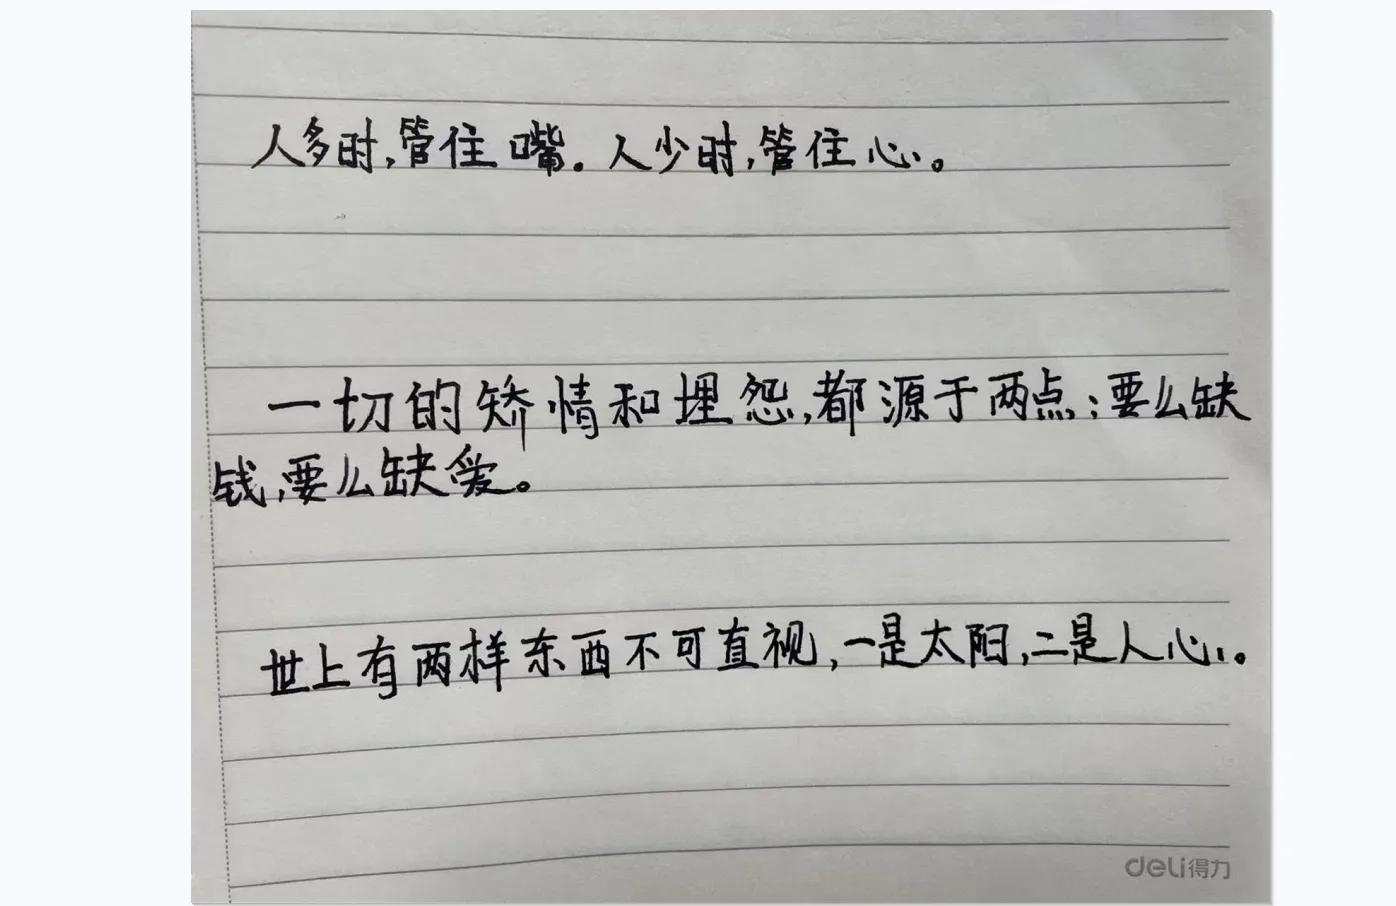 人多时,管住嘴。人少时,管住心。
一切的矫情和埋怨,都源于两点:要么缺
钱,要么缺爱。
世上有两样东西不可直视,一是太阳,二是人心。
deli得力